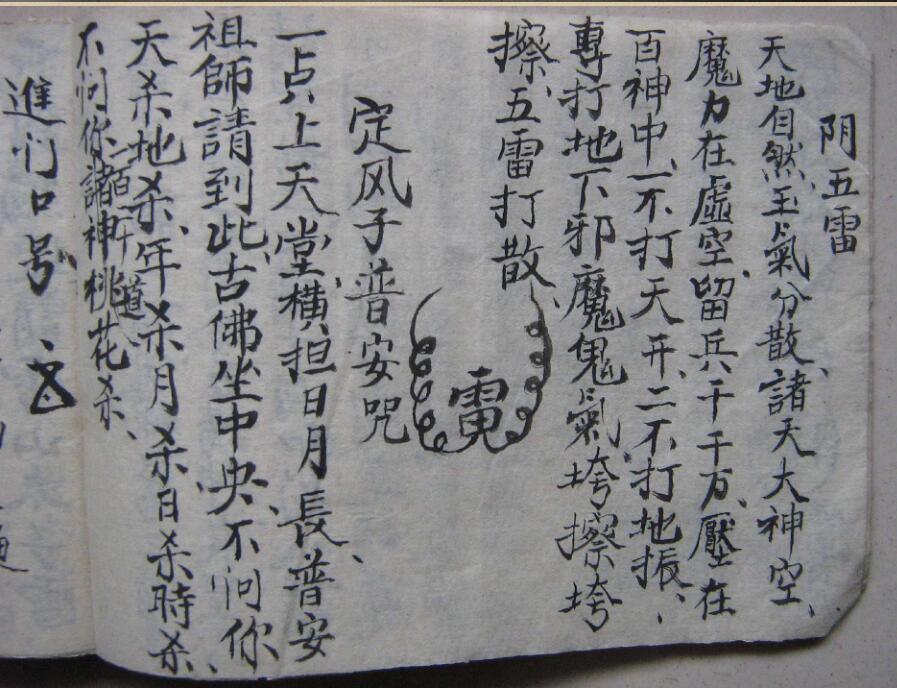 阴五雷
天地自然玉氣分散、諸天大神空、
魔力在虛空留兵千千万、壓在
百神中、一不打天开、二不打地振、
專打地下邪魔鬼氣、垮擦垮
擦、五雷打散、
雷
定风子普安咒
一占上天堂、横担日月長、普安
祖師請到此、古佛坐中央、不问你
天杀地杀、年杀月杀日杀時杀、
不问你一百二十道
諸神桃花杀、
進们口号、